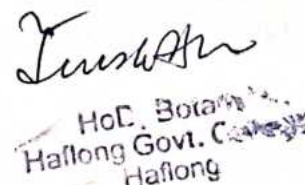 HoD, Botany
Haflong Govt. College
Haflong